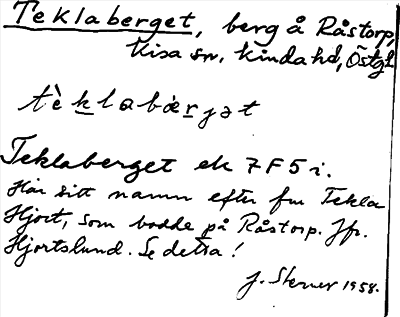 Teklaberget, berg å Råstorp,
Kisa sn, Kinda hd, Östgl
tèklabærjət
Teklaberget ek 7F5i.
Har sitt namn efter fru Tekla
Hjort, som bodde på Råstorp. Jfr.
Hjortslund. Se detta!
J. Sterner 1958.